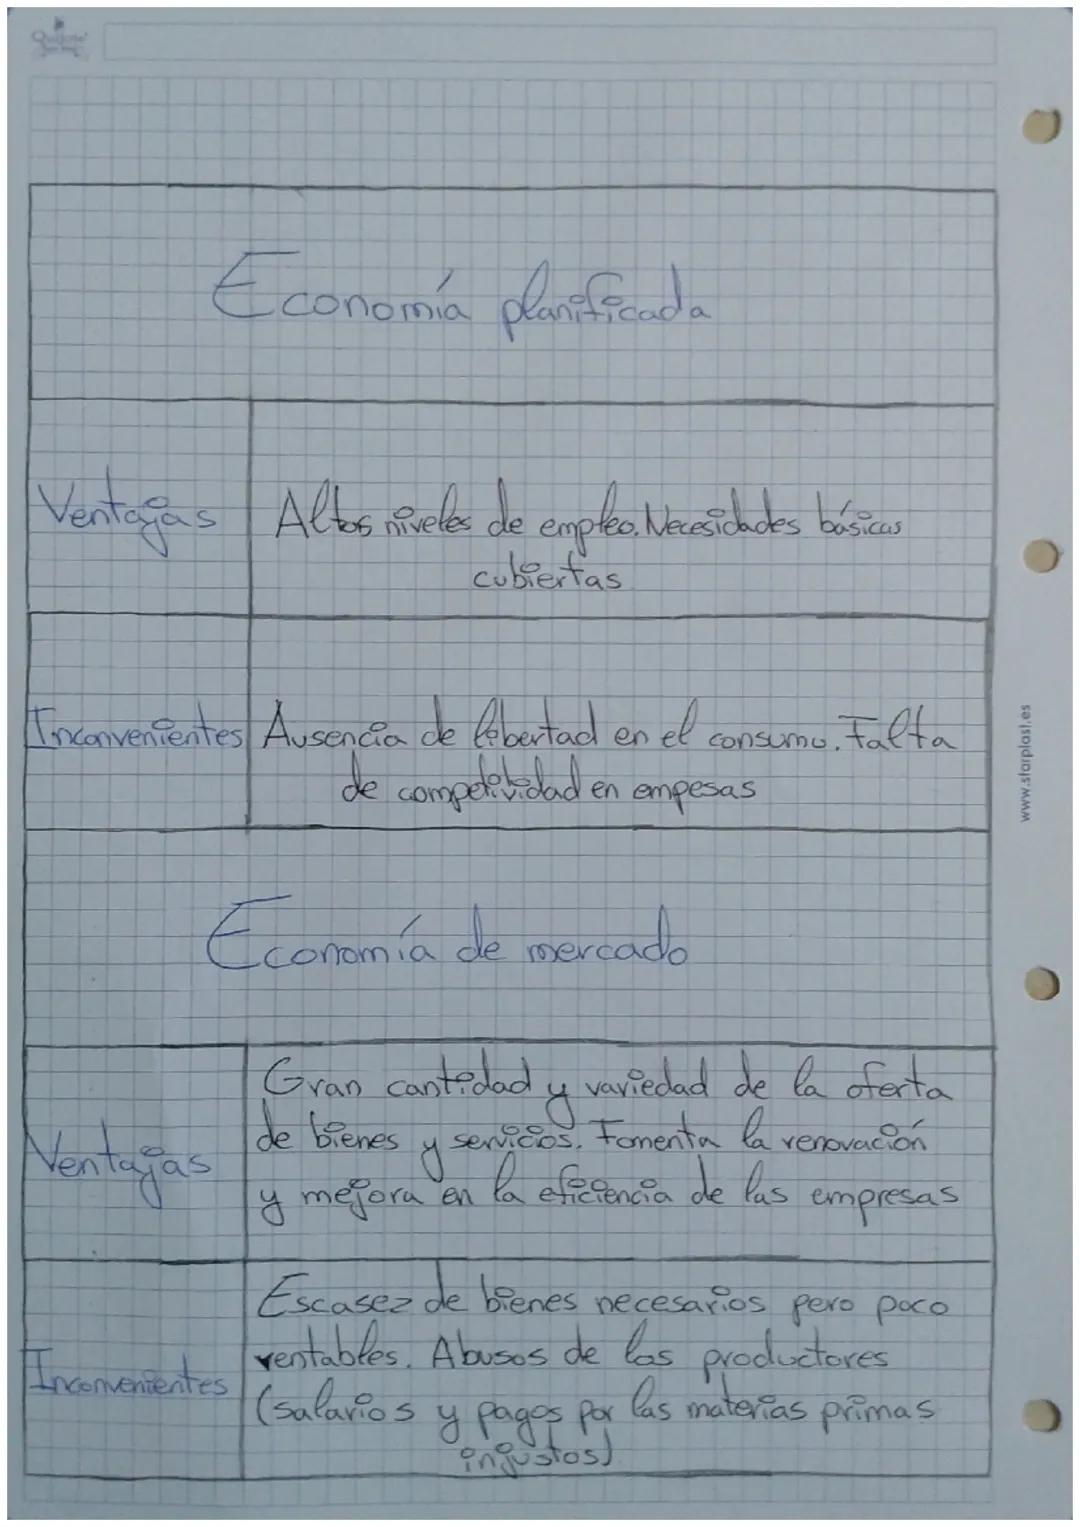 Economía planificada
Ventajas
Altos niveles de empleo. Necesidades básicas
cubiertas
Inconvenientes
Ausencia de libertad en el consumo. Falta
de competividad en empesas
Economía de mercado
Ventajas
Gran cantidad y variedad de la oferta
de bienes y servicios. Fomenta la renovación
y mejora en la eficiencia de las empresas
Inconvenientes
Escasez de bienes necesarios pero poco
rentables. Abusos de los productores
(salarios y pagos por las materias primas
injustos)
www.starplast.es